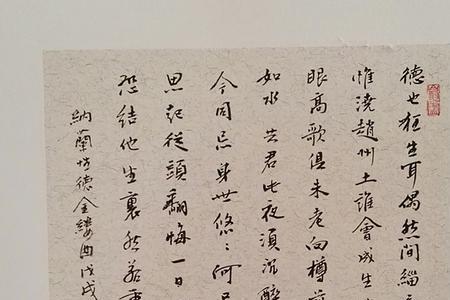 德也狂生耳偶然間緇
惟澆趙州土誰會成生
眼高歌俱未老向樽
如水共君此夜須沉醉
今同忌身世悠〻何
思起從頭翻悔一日
恐結他生裏然諾重
納蘭性德金縷曲戊戌